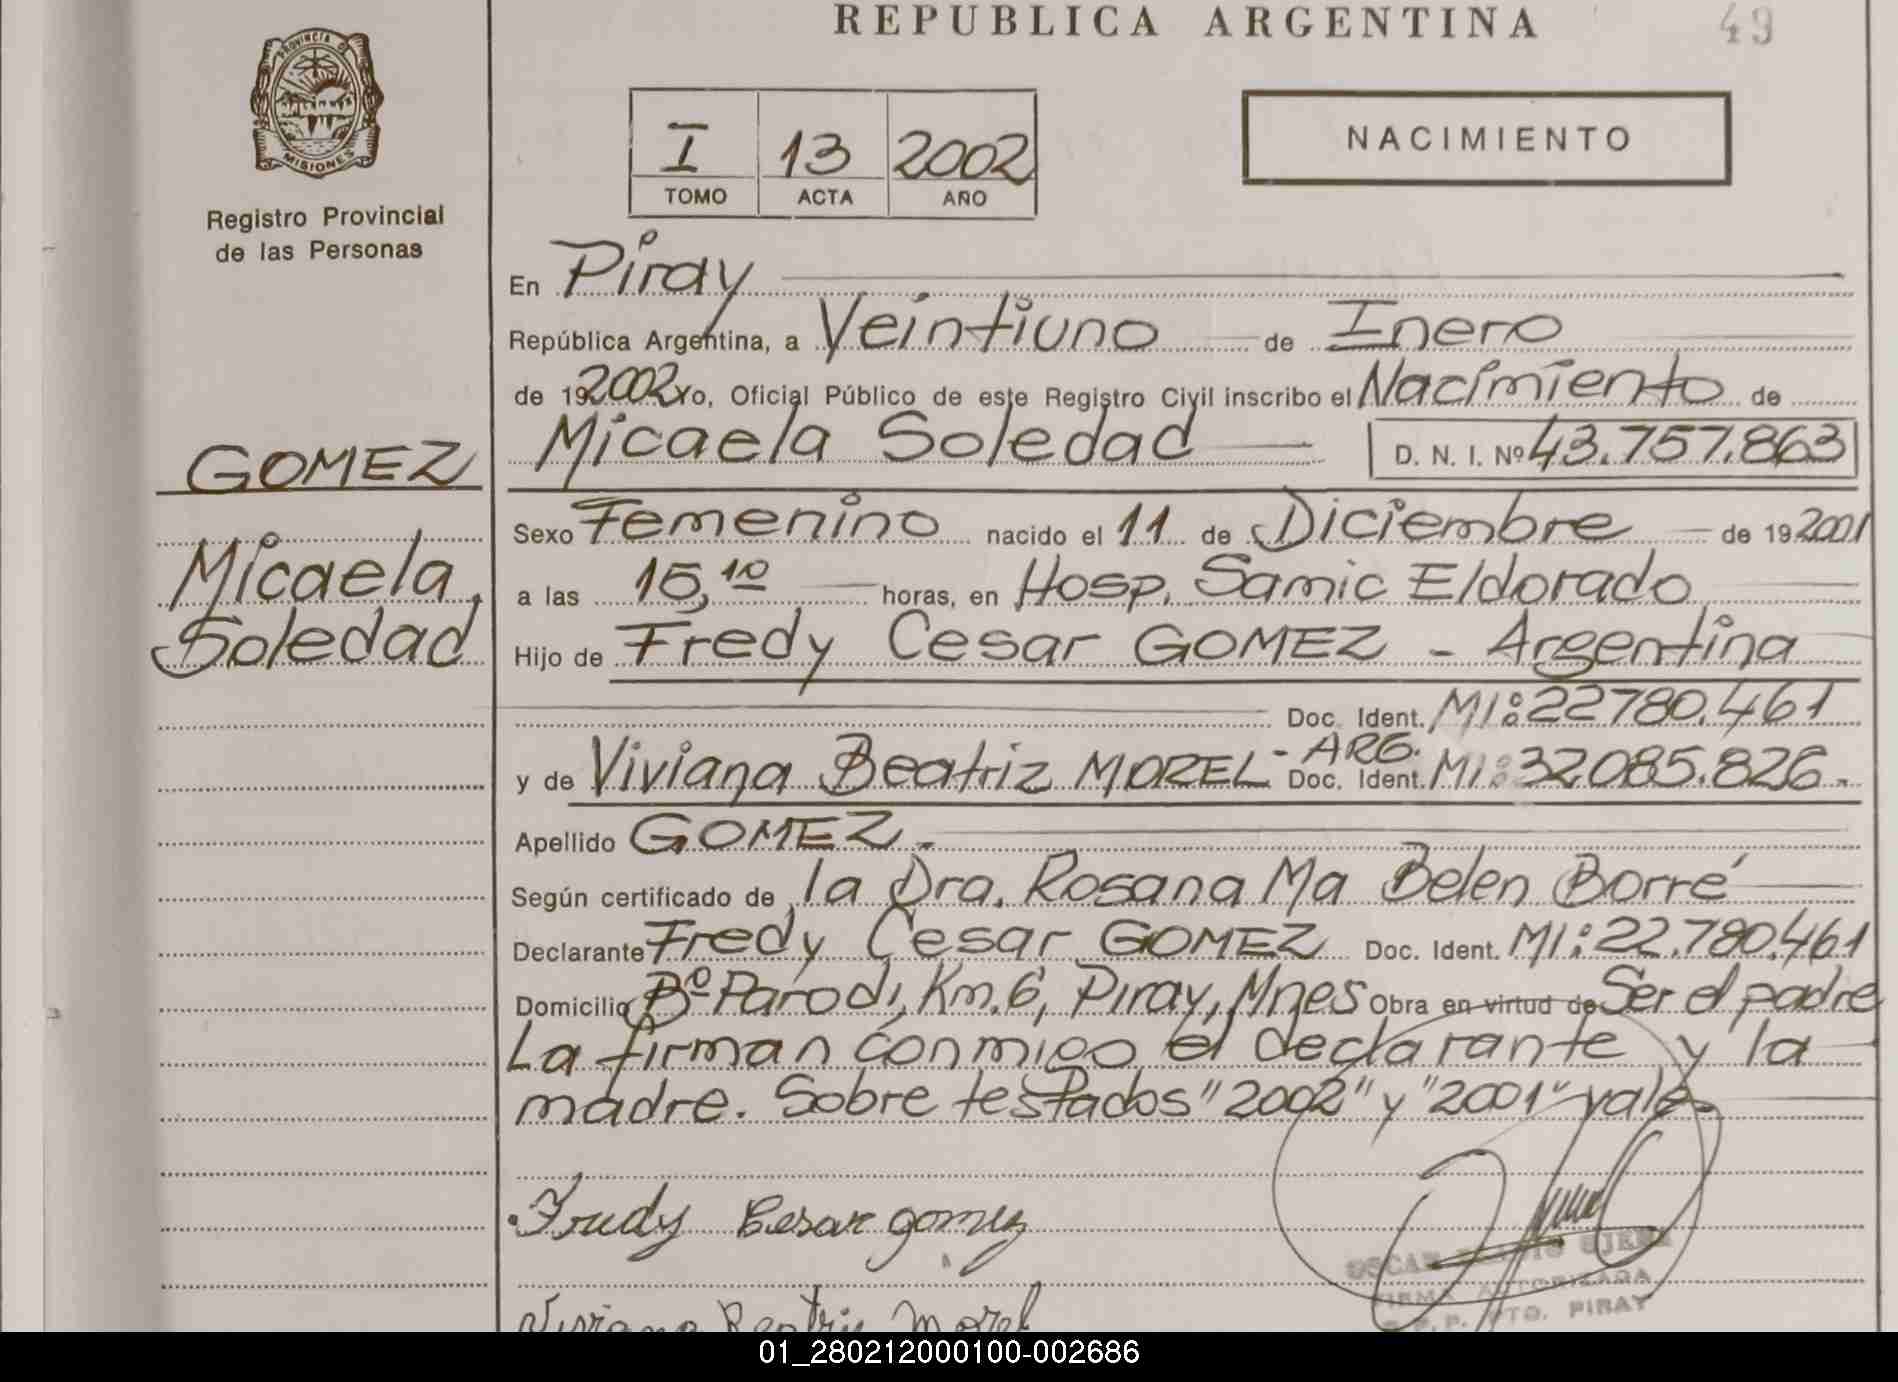 REPUBLICA ARGENTINA
49
PROVINCIA D
MISIONES
Registro Provincial
de las Personas
I 13 2002
TOMO ACTA AÑO
NACIMIENTO
En Piray
República Argentina, a Veintiuno de Inero
de 192002 Yo, Oficial Público de este Registro Civil inscribo el Nacimiento de
GOMEZ
Micaela Soledad D. N. I. Nº 43.757.863
Sexo Femenino nacido el 11 de Diciembre de 192001
Micaela,
Soledad
a las 15,10 horas, en Hosp. Samic Eldorado
Hijo de Fredy Cesar GOMEZ - Argentina
Doc. Ident. MI: 22780.461
y de Viviana Beatriz MOREL - ARG. Doc. Ident. MI: 32085.826.-
Apellido GOMEZ.
Según certificado de la Dra. Rosana Ma Belen Borré
Declarante Fredy Cesar GOMEZ Doc. Ident. MI: 22.780.461
Domicilio Bº Parodi, Km. 6, Piray, Mnes Obra en virtud de Ser el padre
La firman conmigo el declarante y la
madre. Sobre testados "2002" y "2001" vale.
Fredy Cesar gomez
OSCAR OJEDA
FIRMA AUTORIZADA
R.P.P. PTO. PIRAY
Viviana Beatriz Morel
01_280212000100-002686